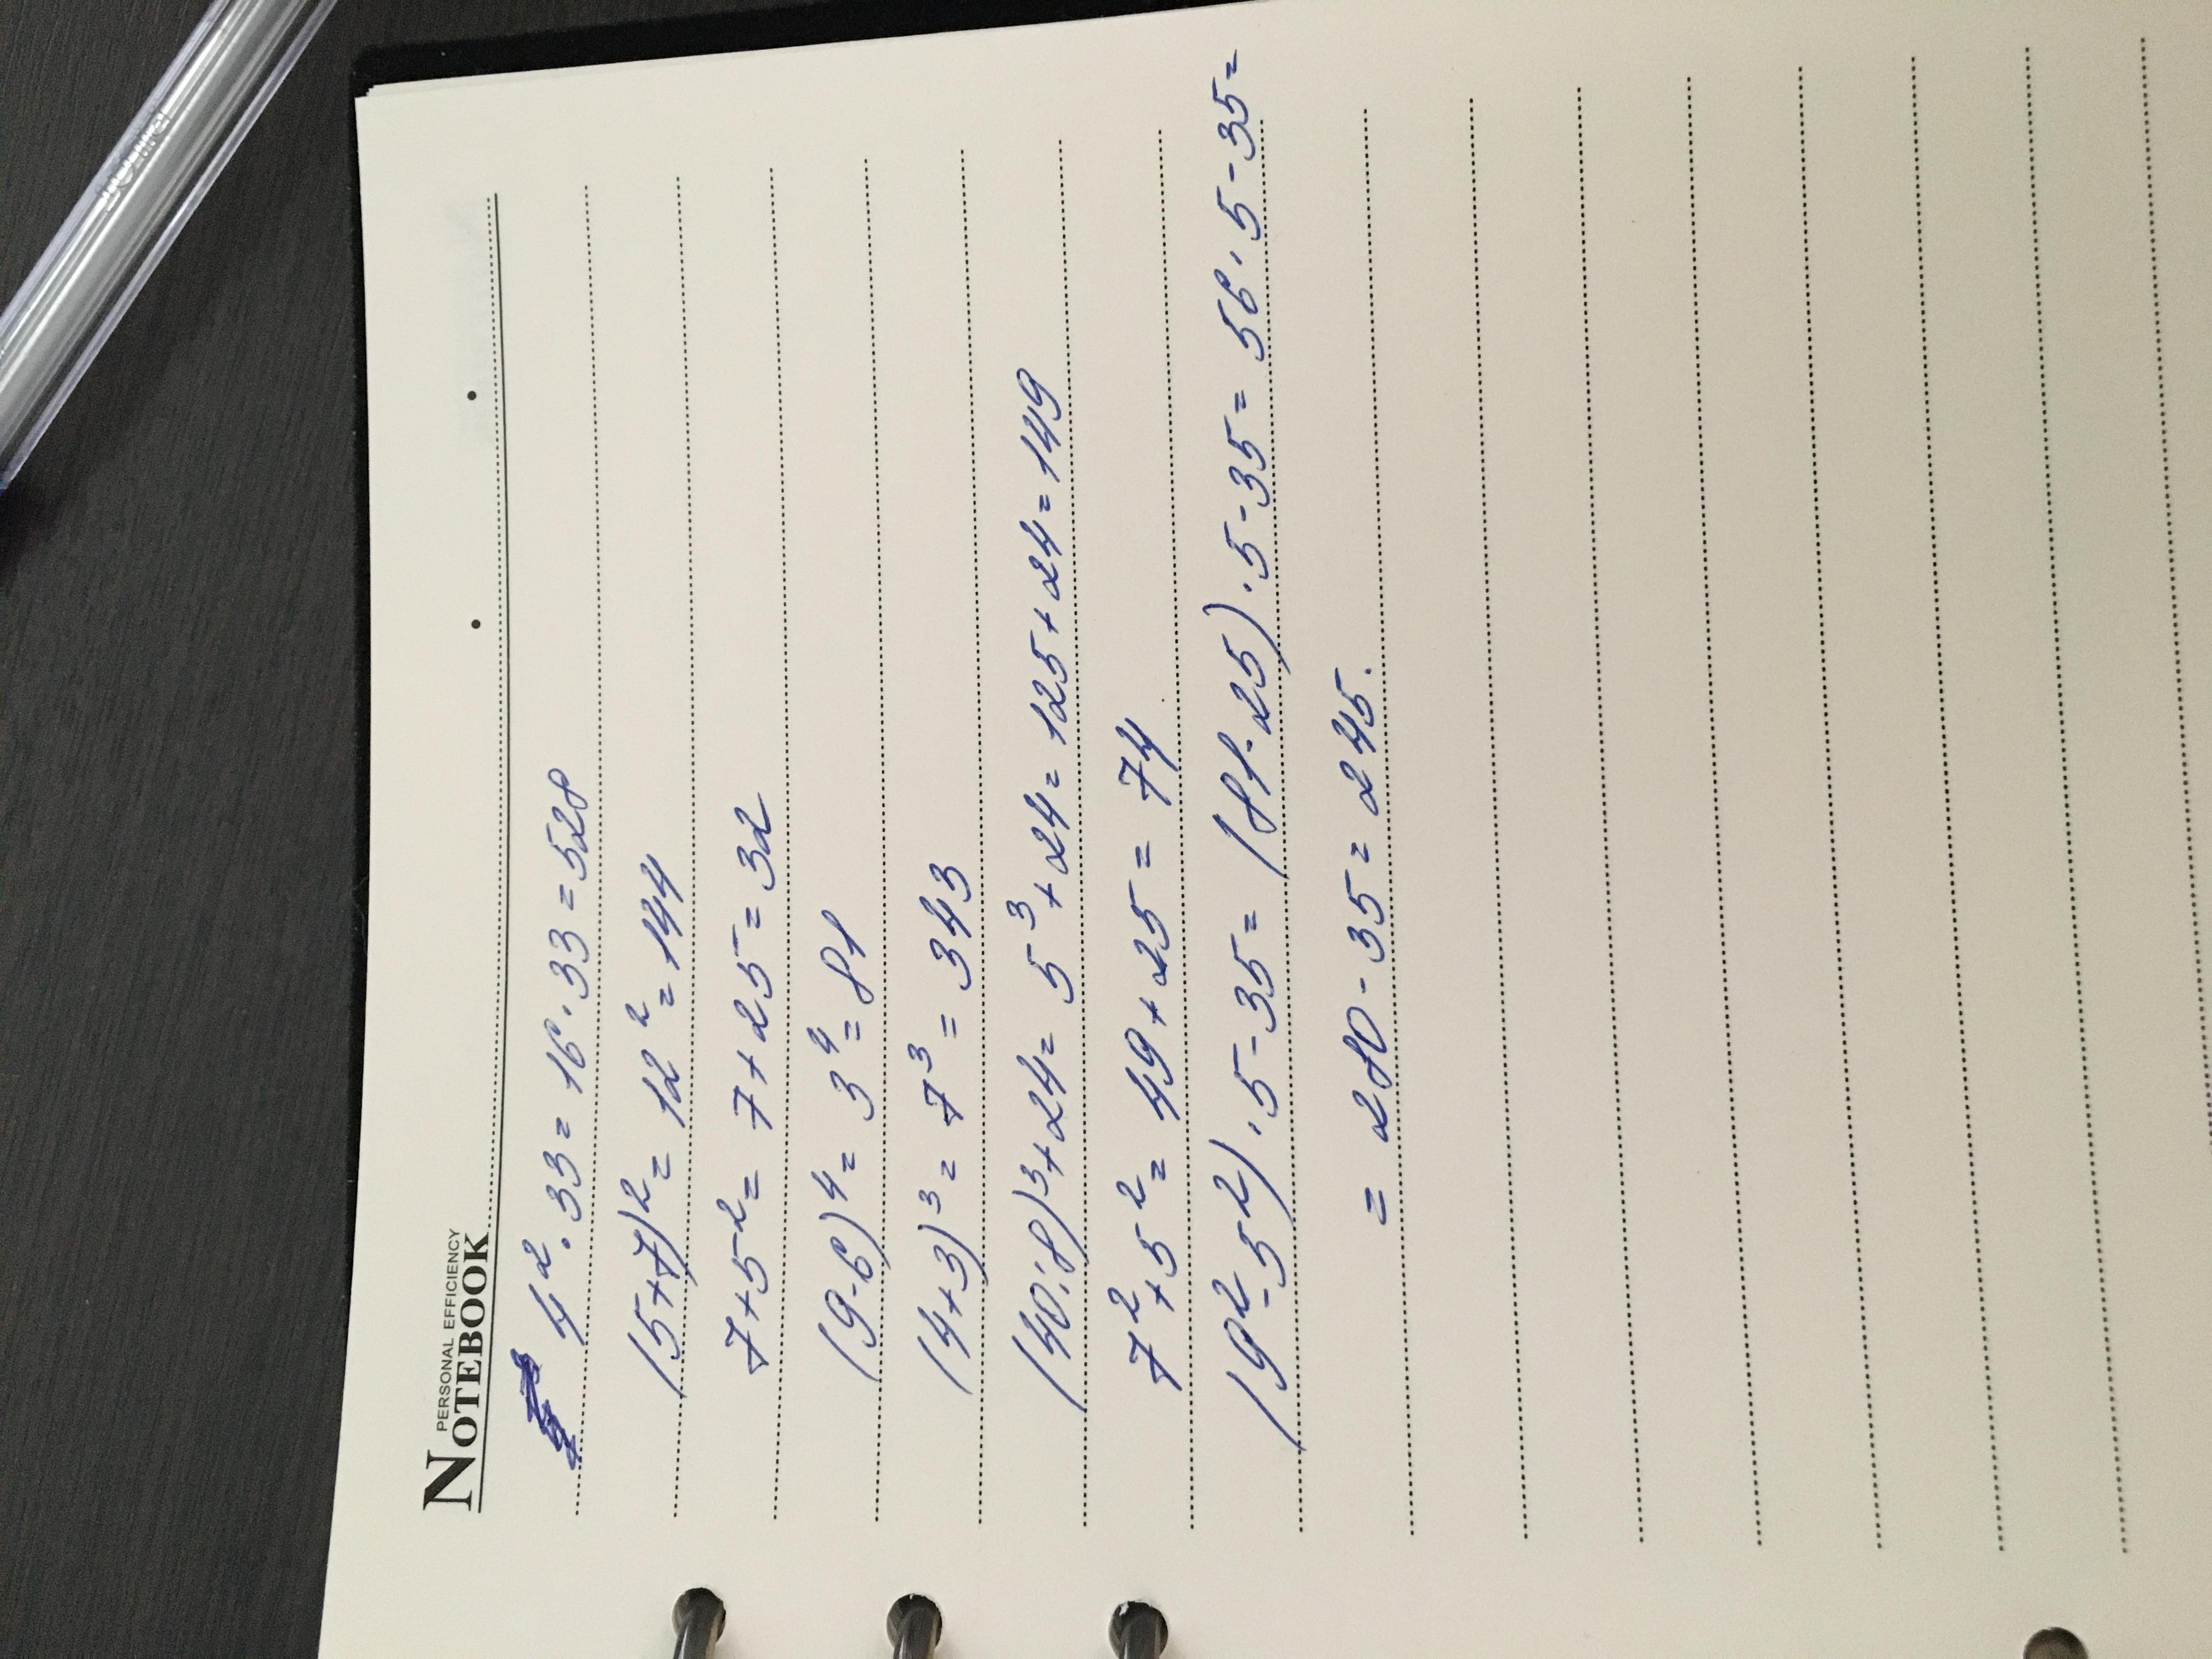 PERSONAL EFFICIENCY
NOTEBOOK
4²·33=16·33=528
(5+7)²=12²=144
7+5²=7+25=32
(9-6)⁴=3⁴=81
(4+3)³=7³=343
(40:8)³+24=5³+24=125+24=149
7²+5²=49+25=74
(9²-5²)·5-35=(81-25)·5-35=56·5-35=
=280-35=245.